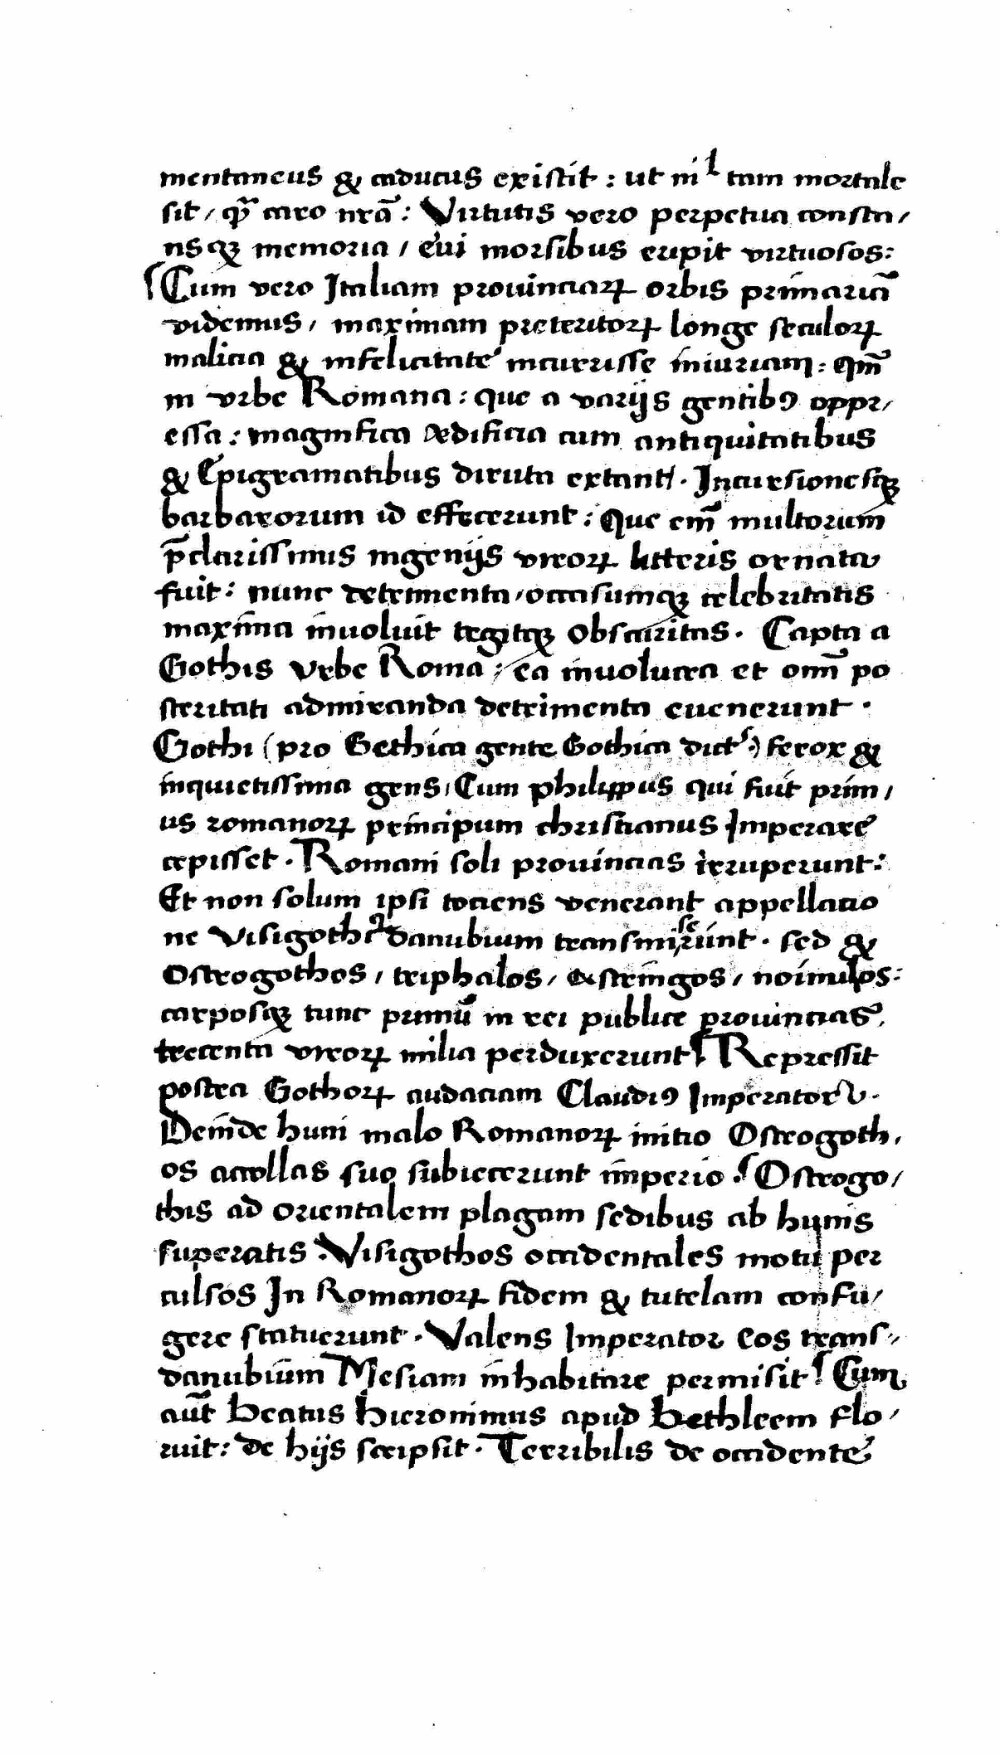 mentaneus & caducus existit : ut nil tam mortale
sit / qͣ caro nrā : Virtutis vero perpetua consta/
nsqꝫ memoria / eui morsibus eripit virtuosos :
Cum vero Italiam prouinciaꝝ orbis primariā
videmus / maximam preteritoꝝ longe seculoꝝ
malicia & infelicitate incurrisse iniuriam : qm̄
in vrbe Romana : que a varijs gentibꝰ oppr/
essa : magnifica ædificia cum antiquitatibus
& Epigramatibus diruta extant . Incursionesqꝫ
barbarorum id effecerunt : Que em̄ multorum
p̄clarissimis ingenijs viroꝝ litteris ornata
fuit : nunc detrimenta / occasumqꝫ celebritatis
maxima inuoluit tegitqꝫ obscuritas . Capta a
Gothis vrbe Roma / ea inuolucra et om̄ po
steritati admiranda detrimenta euenerunt .
Gothi (pro Gethica gente Gothica dict) ferox &
inquietissima gens / Cum philippus qui fuit prim/
us romanoꝝ principum christianus Imperare
cepisset . Romani soli prouincias irruperunt :
Et non solum ipsi tociens venerant appellatio
ne Visigothi danubium transmiserunt . sed &
Ostrogothos / triphalos / & stringos / noimulos :
carposqꝫ tunc primū in rei publice prouincias
trecenta viroꝝ milia perduxerunt Repressit
postea Gothoꝝ audaciam Claudiꝰ Imperator .
Deinde huni malo Romanoꝝ initio Ostrogoth /
os accollas suo subiecerunt imperio . Ostrogo/
this ad orientalem plagam sedibus ab hunis
superatis . Visigothos occidentales motu per
culsos In Romanoꝝ fidem & tutelam confu/
gere statuerunt . Valens Imperator eos trans /
danubium Mesiam inhabitare permisit Cum
aūt Beatus Hieronimus apud Bethleem flo /
ruit : de hijs scripsit . Terribilis de occidente